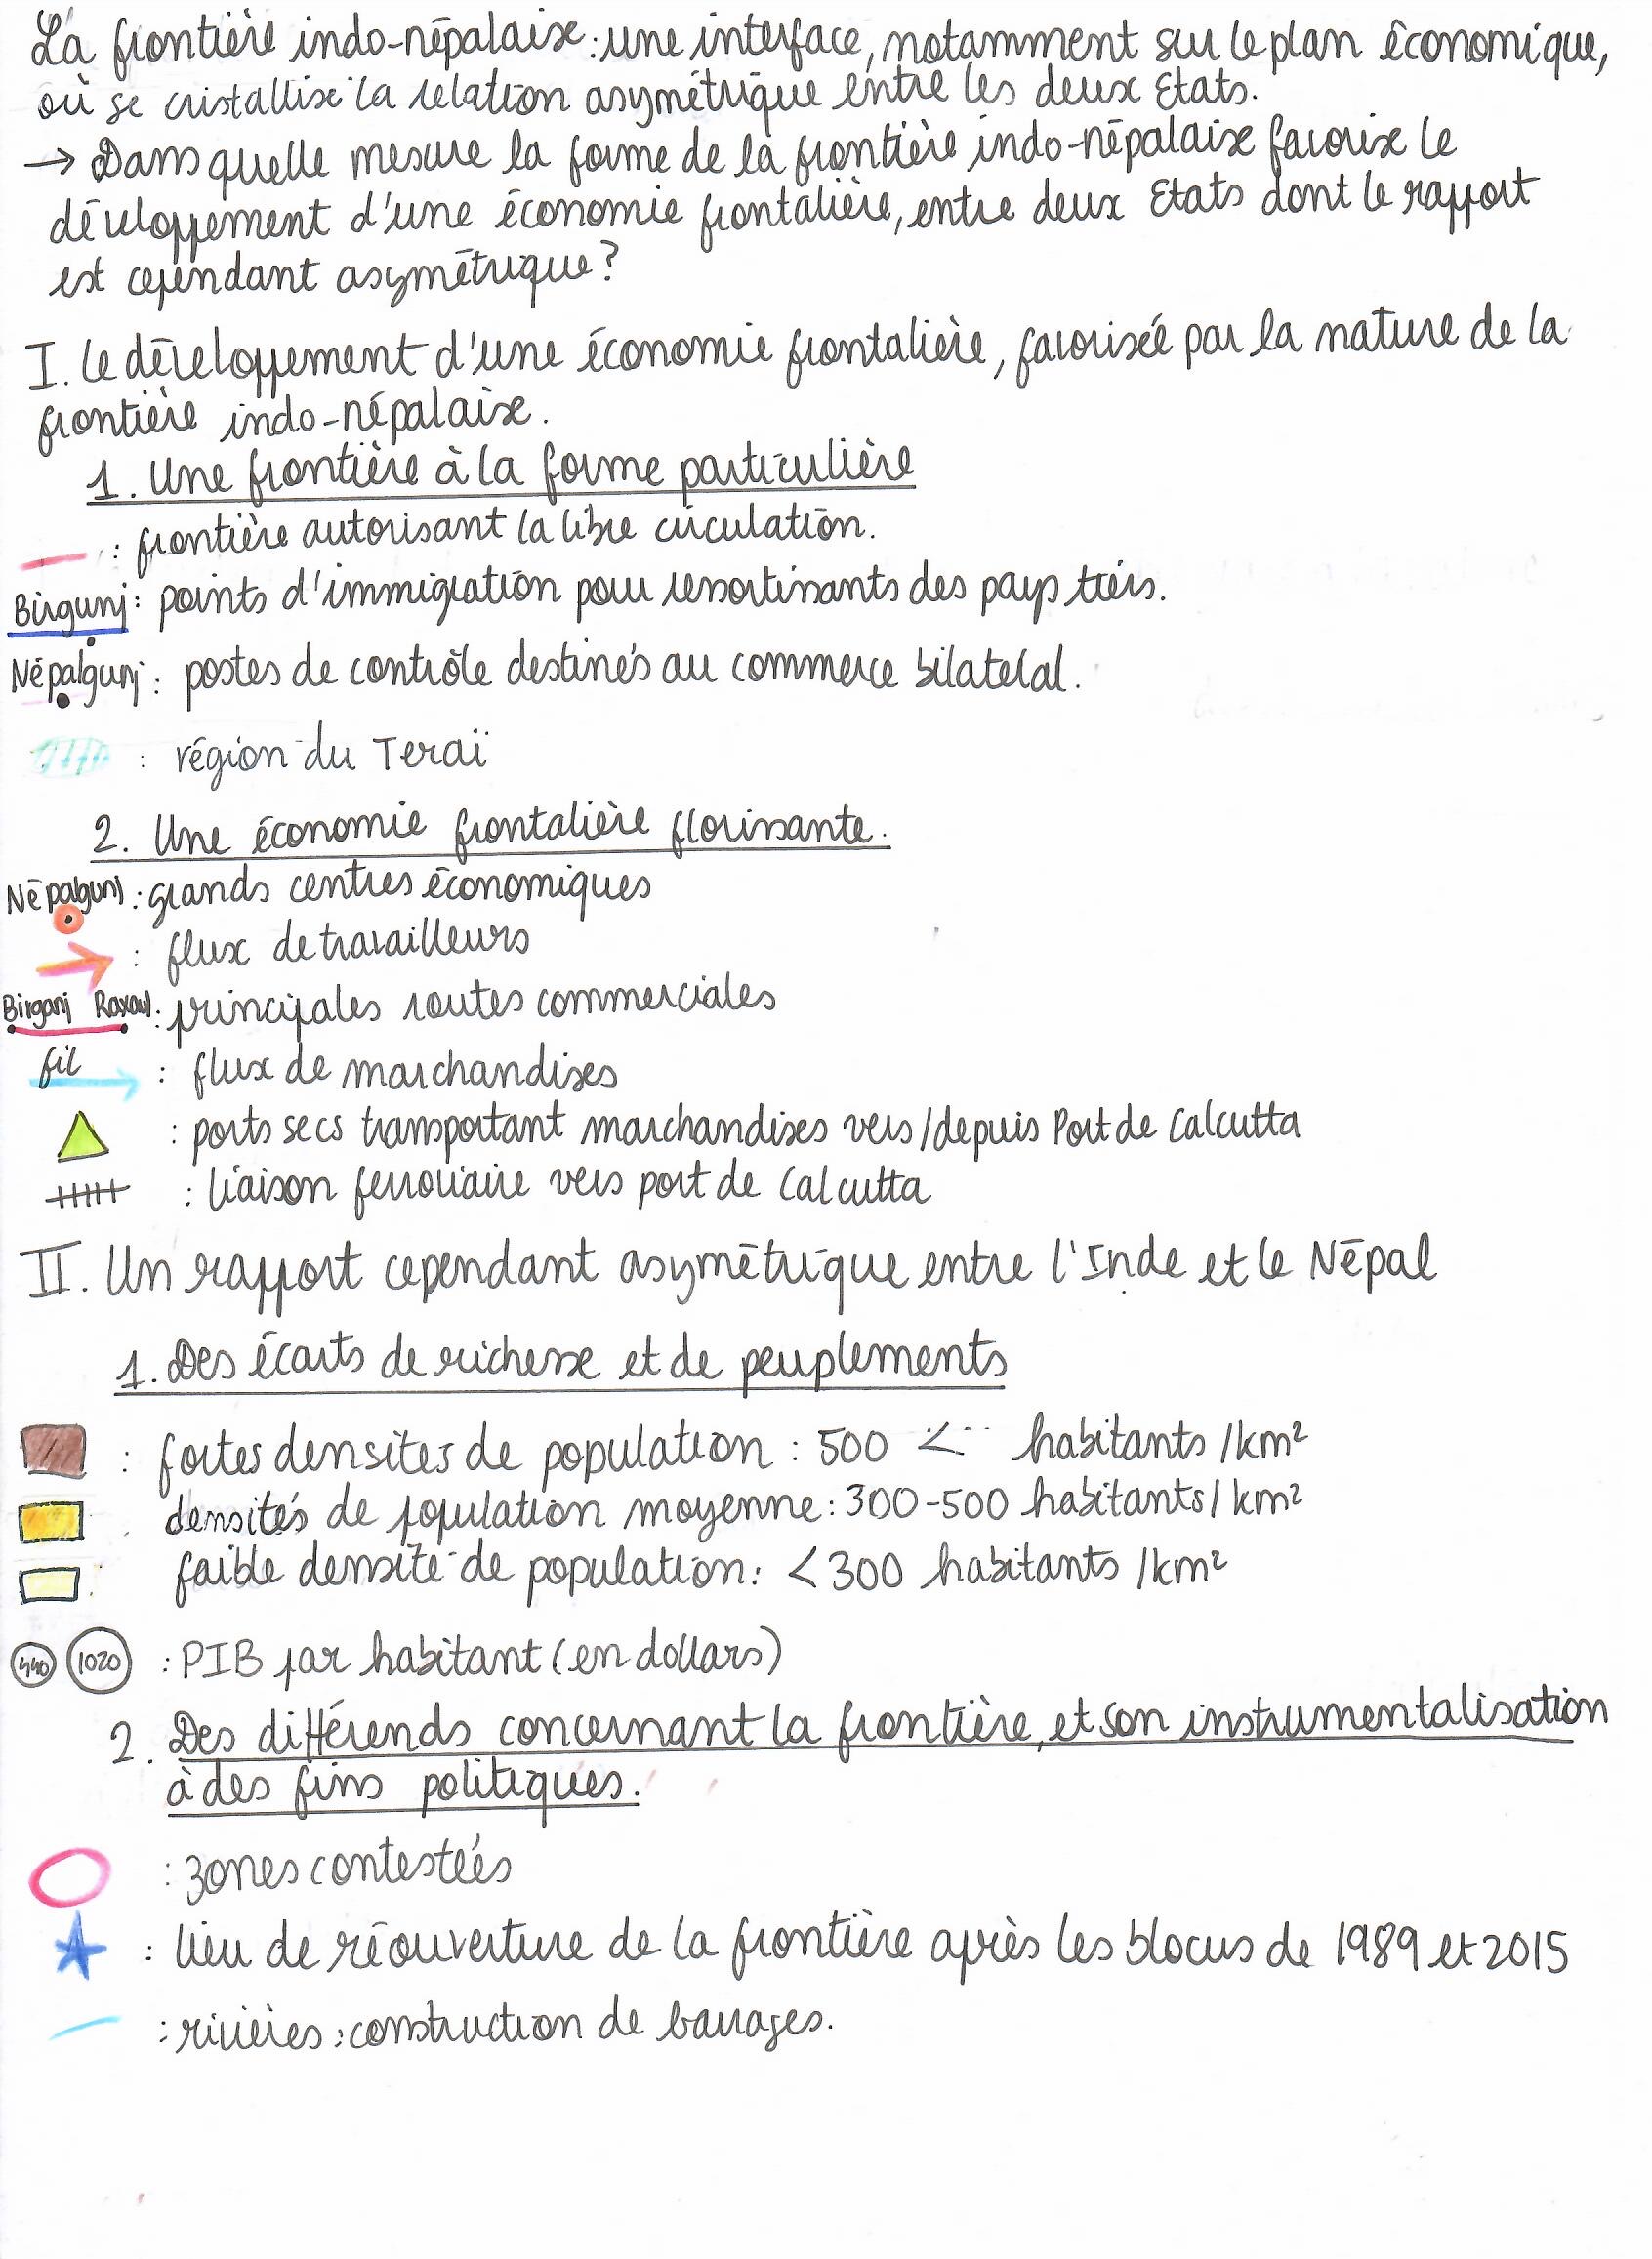 La frontière indo-népalaise : une interface, notamment sur le plan économique,
où se cristallise la relation asymétrique entre les deux Etats.
→ Dans quelle mesure la forme de la frontière indo-népalaise favorise le
développement d'une économie frontalière, entre deux Etats dont le rapport
est cependant asymétrique ?
I. Le développement d'une économie frontalière, favorisée par la nature de la
frontière indo-népalaise.
1. Une frontière à la forme particulière
: frontière autorisant la libre circulation.
Birgunj : points d'immigration pour ressortissants des pays tiers.
Népalgunj : postes de contrôle destinés au commerce bilatelal.
: région du Teraï
2. Une économie frontalière florissante.
Népalgunj : grands centres économiques
: flux de travailleurs
Birganj Raxaul : principales routes commerciales
fil : flux de marchandises
: ports secs transportant marchandises vers/depuis Port de Calcutta
: liaison ferroviaire vers port de Calcutta
II. Un rapport cependant asymétrique entre l'Inde et le Népal
1. Des écarts de richesse et de peuplements
: fortes densités de population : 500 < habitants /km²
densités de population moyenne : 300-500 habitants/km²
faible densité de population : <300 habitants /km²
440 1020 : PIB par habitant (en dollars)
2. Des différends concernant la frontière, et son instrumentalisation
à des fins politiques.
: zones contestées
: lieu de réouverture de la frontière après les blocus de 1989 et 2015
: rivières : construction de barrages.